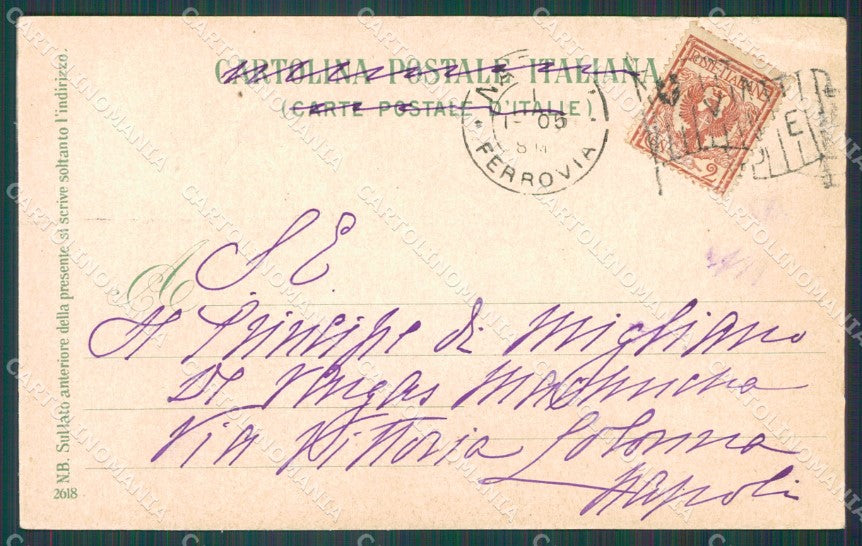 CARTOLINA POSTALE ITALIANA
(CARTE POSTALE D'ITALIE)
FERROVIA
05
POSTE ITALIANE
2
A
S E
Il Principe di Migliano
De Vargas Machucha
Via Vittoria Colonna
Napoli
N.B. Sul lato anteriore della presente si scrive soltanto l'indirizzo.
2618
CARTOLINOMANIA